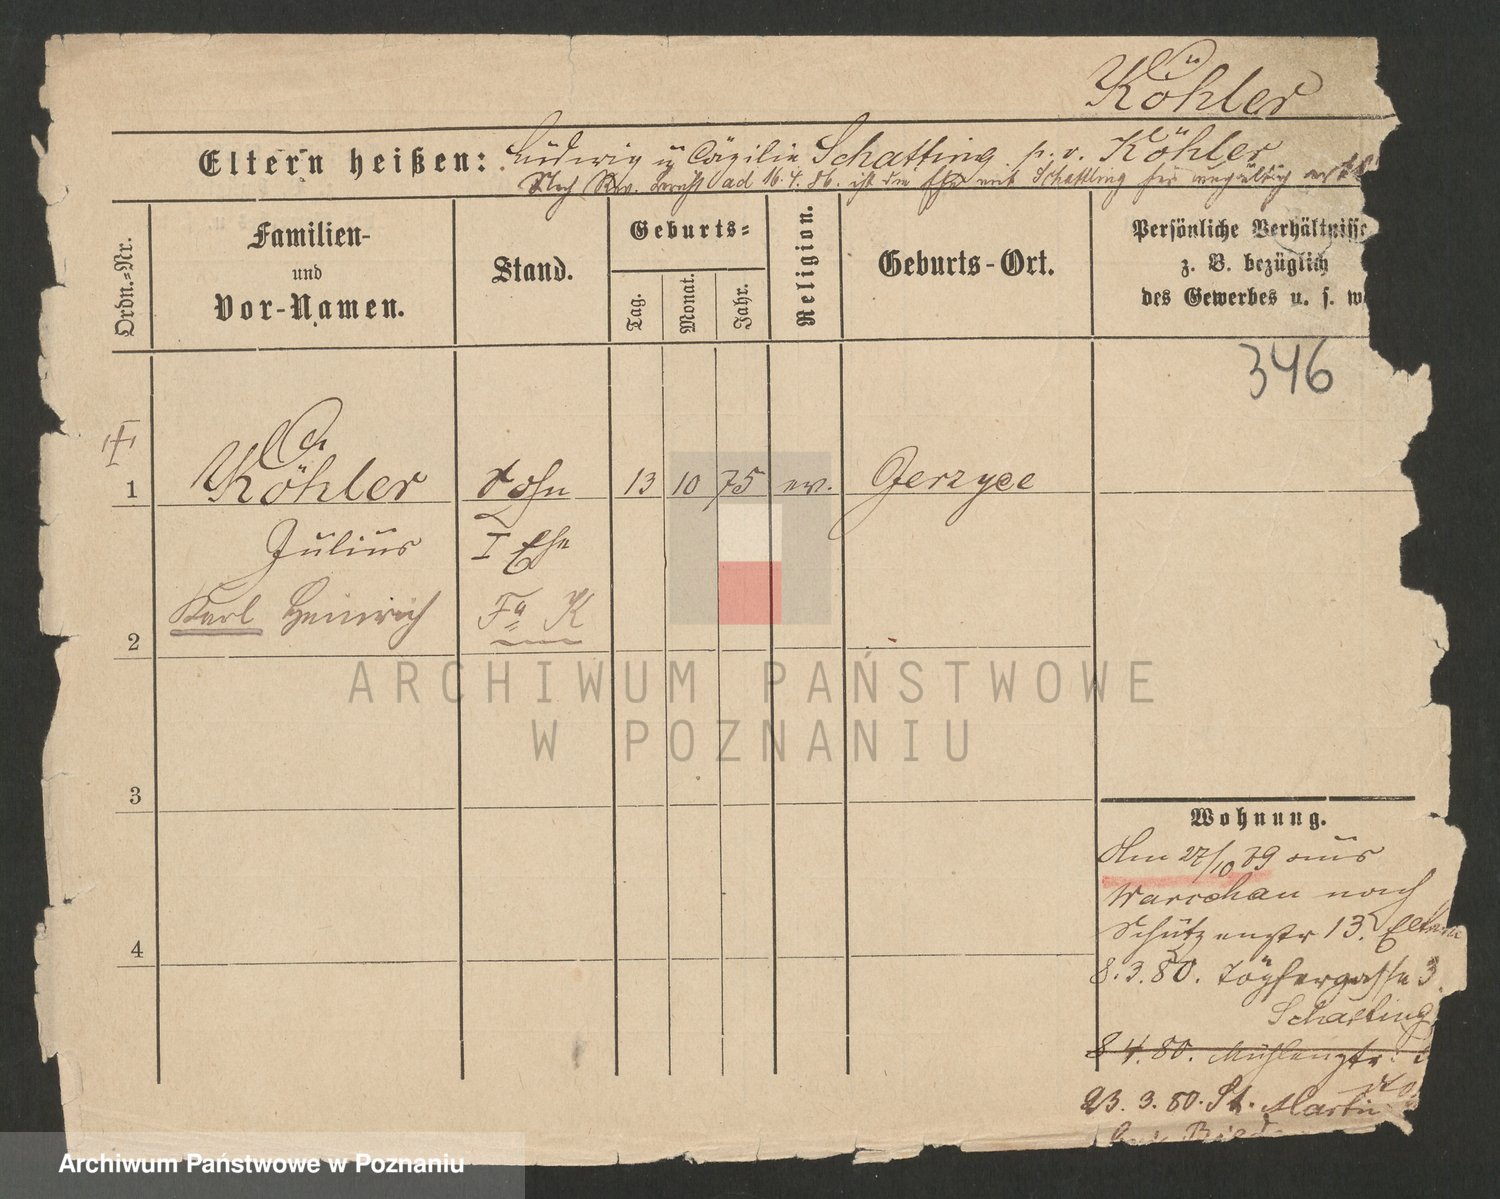 Köhler
Eltern heißen: Ludwig u Cäzilie Schatting p. v. Köhler
Nach Rev. Bericht ad 16.4.86. ist die Ehe mit Schatting für ungültig
Ordn.-Nr.
Familien-
und
Vor-Namen.
Stand.
Geburts-
Tag.
Monat.
Jahr.
Religion.
Geburts-Ort.
Persönliche Verhältnisse
z. B. bezüglich
des Gewerbes u. s. w
346
1
Köhler
Sohn
13
10
75
ev.
Gerzyce
Julius
I Ehe
Karl Heinrich
Fa K
2
3
4
Wohnung.
Am 27/10 79 aus
Warschau nach
Schützenstr 13. Eltern
8.3.80. Töpfergasse 3.
Schatting
8 4. 80. Mühlenstr.
dto
23. 3. 80. St. Martin
bei
ARCHIWUM PAŃSTWOWE
W POZNANIU
Archiwum Państwowe w Poznaniu